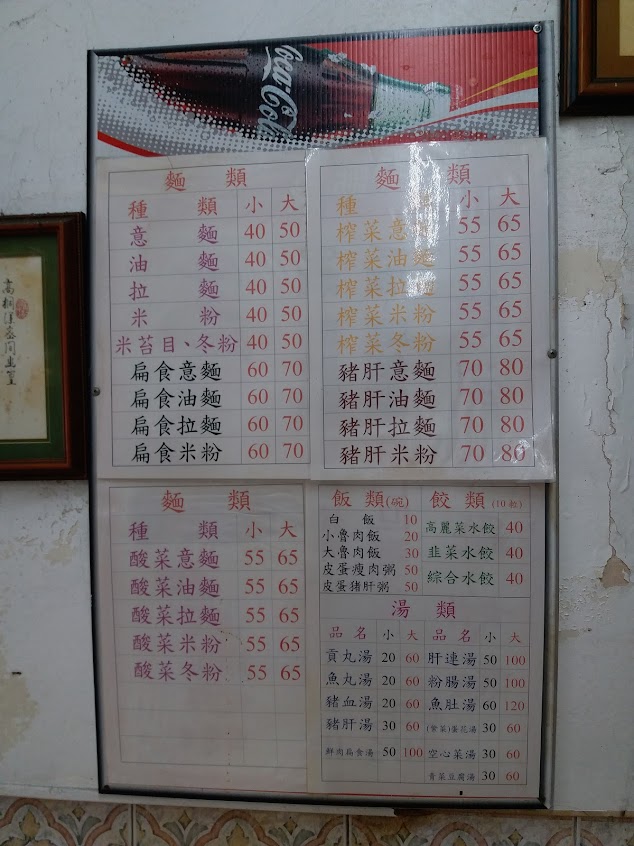 Coca-Cola
麵 類
種 類 小 大
意 麵 40 50
油 麵 40 50
拉 麵 40 50
米 粉 40 50
米苔目、冬粉 40 50
扁食意麵 60 70
扁食油麵 60 70
扁食拉麵 60 70
扁食米粉 60 70
麵 類
種 小 大
榨菜意麵 55 65
榨菜油麵 55 65
榨菜拉麵 55 65
榨菜米粉 55 65
榨菜冬粉 55 65
豬肝意麵 70 80
豬肝油麵 70 80
豬肝拉麵 70 80
豬肝米粉 70 80
麵 類
種 類 小 大
酸菜意麵 55 65
酸菜油麵 55 65
酸菜拉麵 55 65
酸菜米粉 55 65
酸菜冬粉 55 65
飯 類(碗)
白 飯 10
小魯肉飯 20
大魯肉飯 30
皮蛋瘦肉粥 50
皮蛋豬肝粥 50
餃 類(10粒)
高麗菜水餃 40
韭菜水餃 40
綜合水餃 40
湯 類
品 名 小 大 品 名 小 大
貢丸湯 20 60 肝連湯 50 100
魚丸湯 20 60 粉腸湯 50 100
豬血湯 20 60 魚肚湯 60 120
豬肝湯 30 60 (紫菜)蛋花湯 30 60
鮮肉扁食湯 50 100 空心菜湯 30 60
青菜豆腐湯 30 60